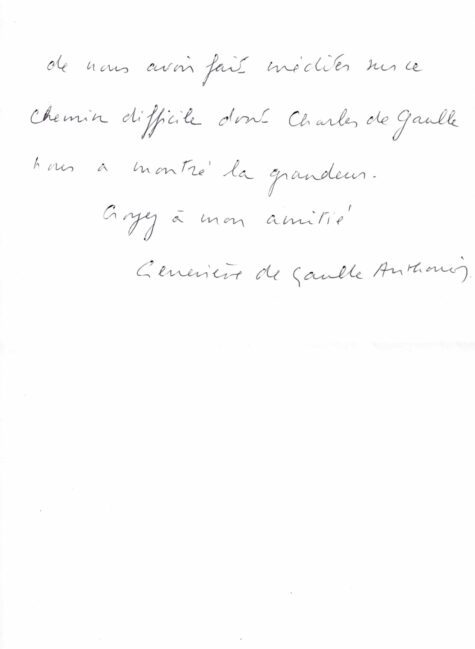 de nous avoir fait méditer sur ce
chemin difficile dont Charles de Gaulle
nous a montré la grandeur.
Croyez à mon amitié
Geneviève de Gaulle Anthonioz